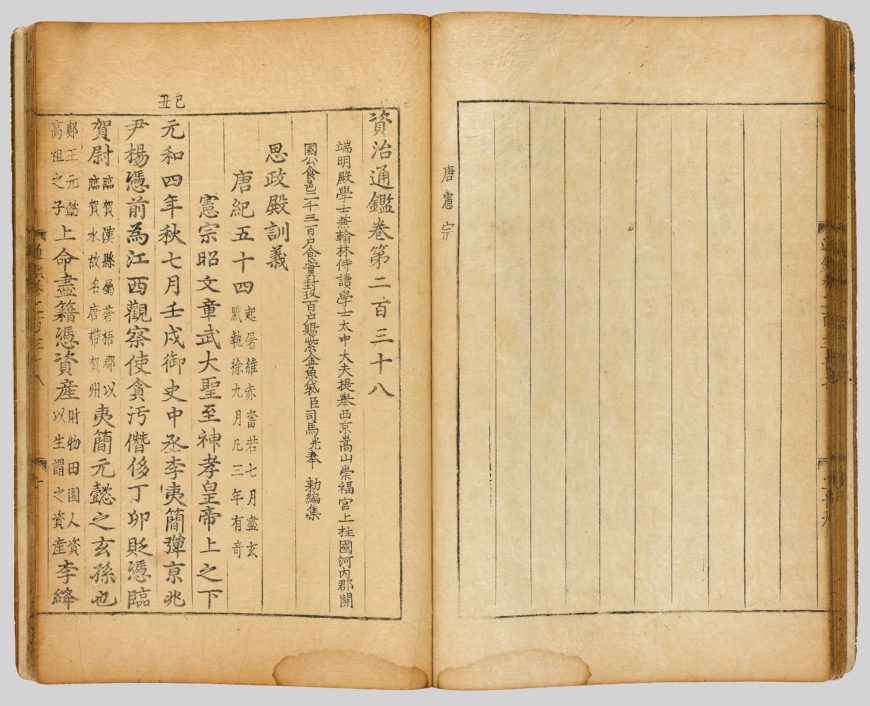 唐憲宗
資治通鑑卷第二百三十八
端明殿學士兼翰林侍讀學士太中大夫提舉西京嵩山崇福宮上柱國河內郡開
國公食邑二千三百戶食實封玖百戶賜紫金魚袋臣司馬光奉 勑編集
思政殿訓義
唐紀五十四 起屠維赤奮若七月盡玄黓執徐九月凡三年有奇
憲宗昭文章武大聖至神孝皇帝上之下
己丑
元和四年秋七月壬戌御史中丞李夷簡彈亰兆
尹楊憑前為江西觀察使貪汚僭侈丁卯貶憑臨
賀尉 臨賀漢縣屬蒼梧郡以臨賀水故名唐帶賀州 夷簡元懿之玄孫也
鄭王元懿高祖之子 上命盡籍憑資産 財物田園人資以生謂之資産 李絳